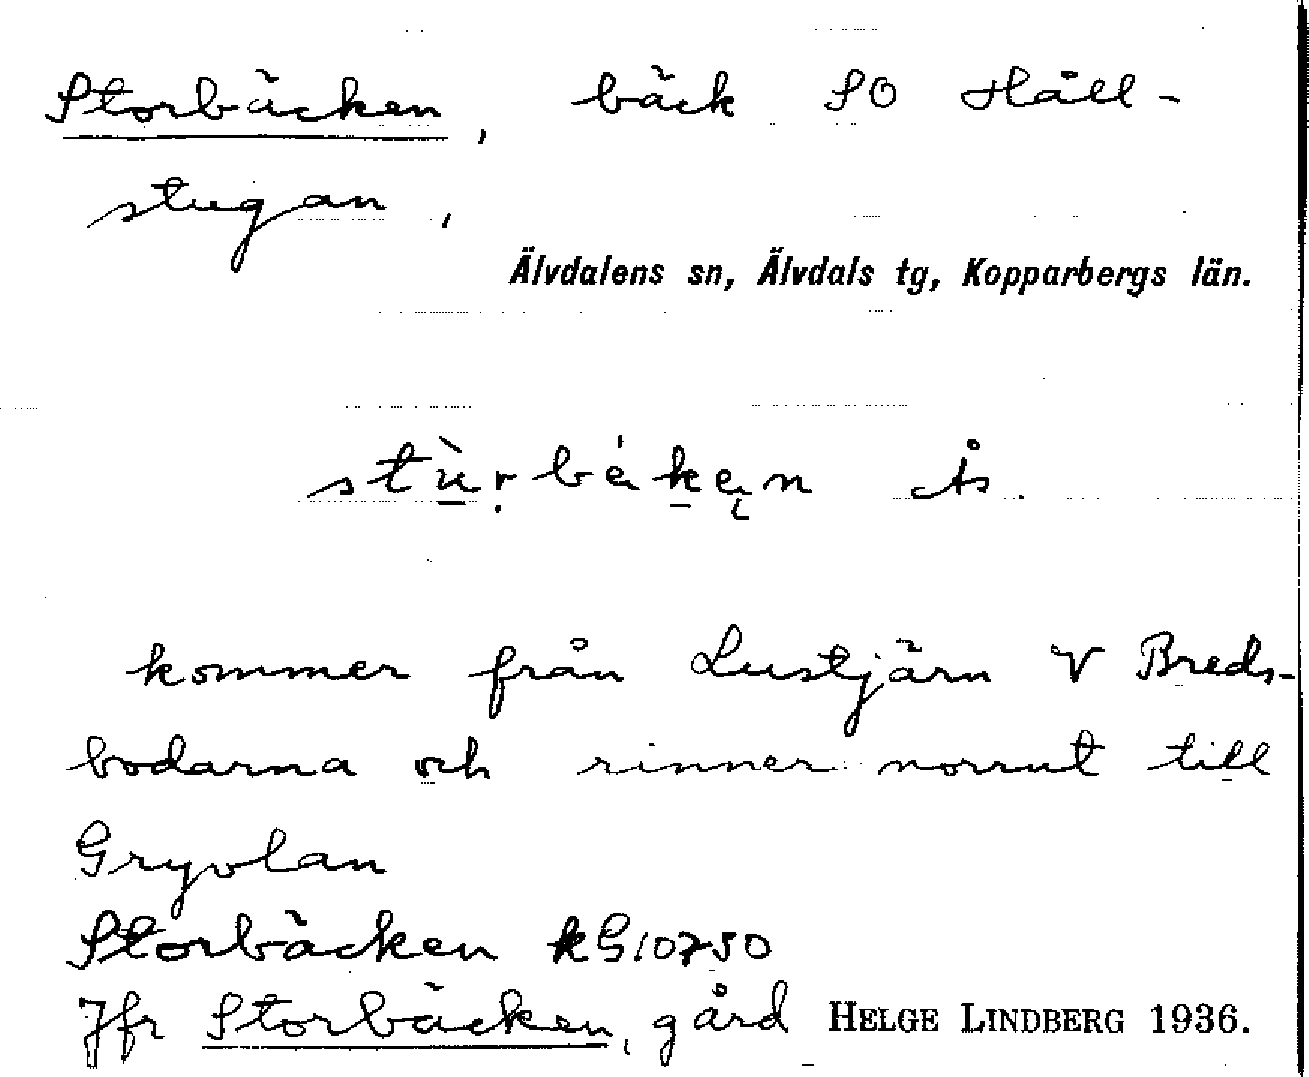 Storbäcken, bäck SO Håll-
stugan,
Älvdalens sn, Älvdals tg, Kopparbergs län.
Ås.
kommer från Lustjärn V Breds-
bodarna och rinner norrut till
Gryvlan
Storbäcken kG10750
Jfr Storbäcken, gård HELGE LINDBERG 1936.